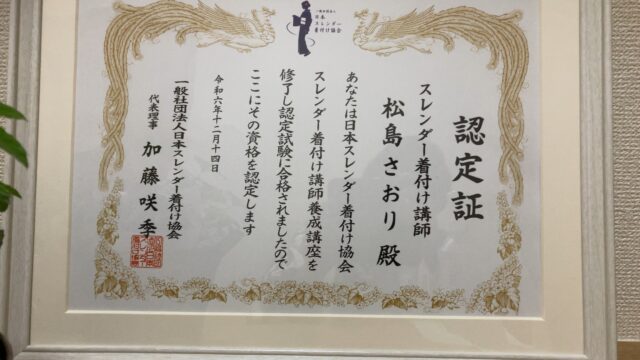 一般社団法人
日本
スレンダー
着付け協会
認定証
スレンダー着付け講師
松島さおり 殿
あなたは日本スレンダー着付け協会
スレンダー着付け講師養成講座を
修了し認定試験に合格されましたので
ここにその資格を認定します
令和六年十二月十四日
一般社団法人日本スレンダー着付け協会
代表理事 加藤咲季